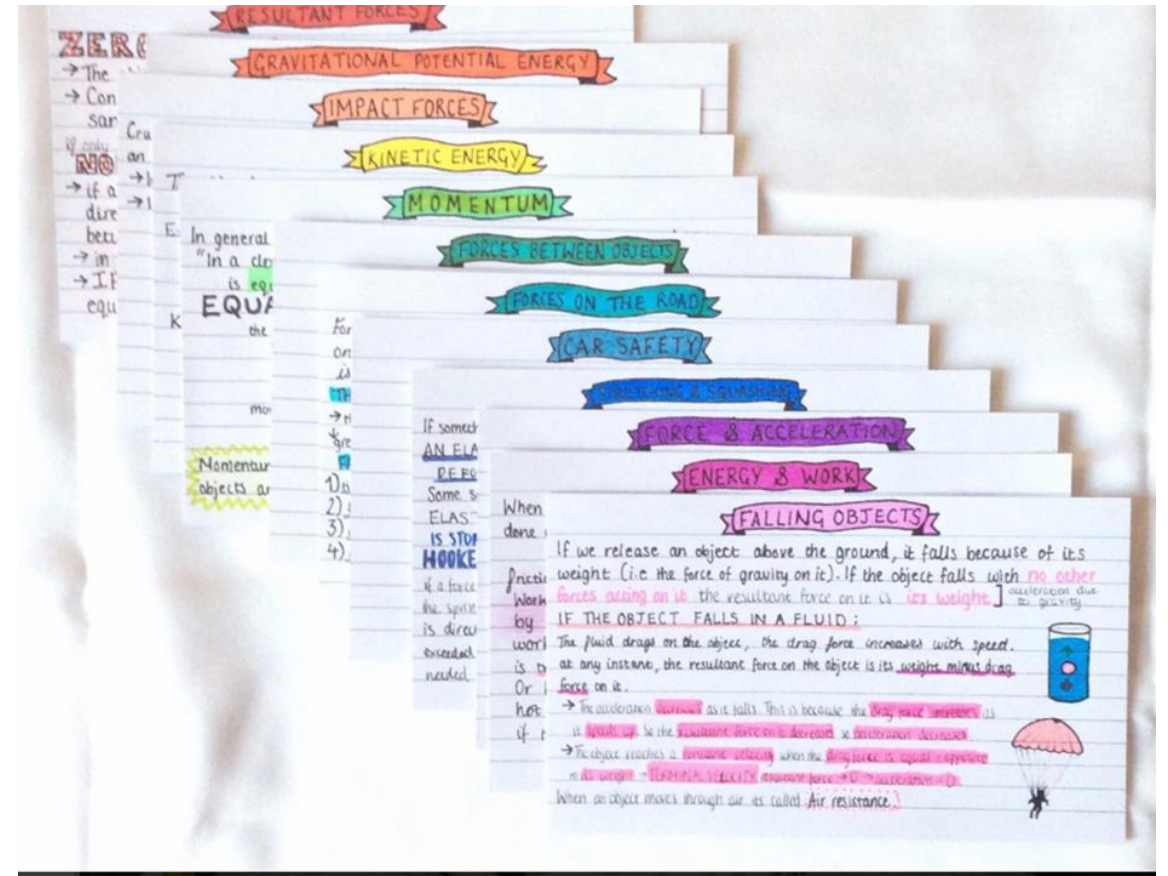 RESULTANT FORCES
ZERO
→ The
→ Con
sar
if only
NO
→ if a
dire
betw
→ in
→ IF
equ
GRAVITATIONAL POTENTIAL ENERGY
IMPACT FORCES
Cru
an
KINETIC ENERGY
T
E
K
MOMENTUM
In general
"In a clo
is equ
EQUA
the
mo
Momentum
objects ar
FORCES BETWEEN OBJECTS
FORCES ON THE ROAD
For
on
is
TH
gre
1)
2)
3)
4)
CAR SAFETY
STRETCHING & SQUASHING
If somet
AN ELA
DEFO
Some s
ELAST
IS STOR
HOOKE
if a force
the sprin
is direc
exceeded
needed
FORCE & ACCELERATION
ENERGY & WORK
When
done
frictio
Work
by
worl
is
Or
hot
if t
FALLING OBJECTS
If we release an object above the ground, it falls because of its
weight (i.e the force of gravity on it). If the object falls with no other
forces acting on it the resultant force on it is its weight.] acceleration due
to gravity
IF THE OBJECT FALLS IN A FLUID:
The fluid drags on the object, the drag force increases with speed.
at any instant, the resultant force on the object is its weight minus drag
force on it.
→ The acceleration decreases as it falls. This is because the drag force increases as
it speeds up. So the resultant force on it decreases so acceleration decreases
→ The object reaches a constant velocity when the drag force is equal & opposite
to its weight → TERMINAL VELOCITY resultant force → 0 → acceleration = 0.
When an object moves through air its called Air resistance.